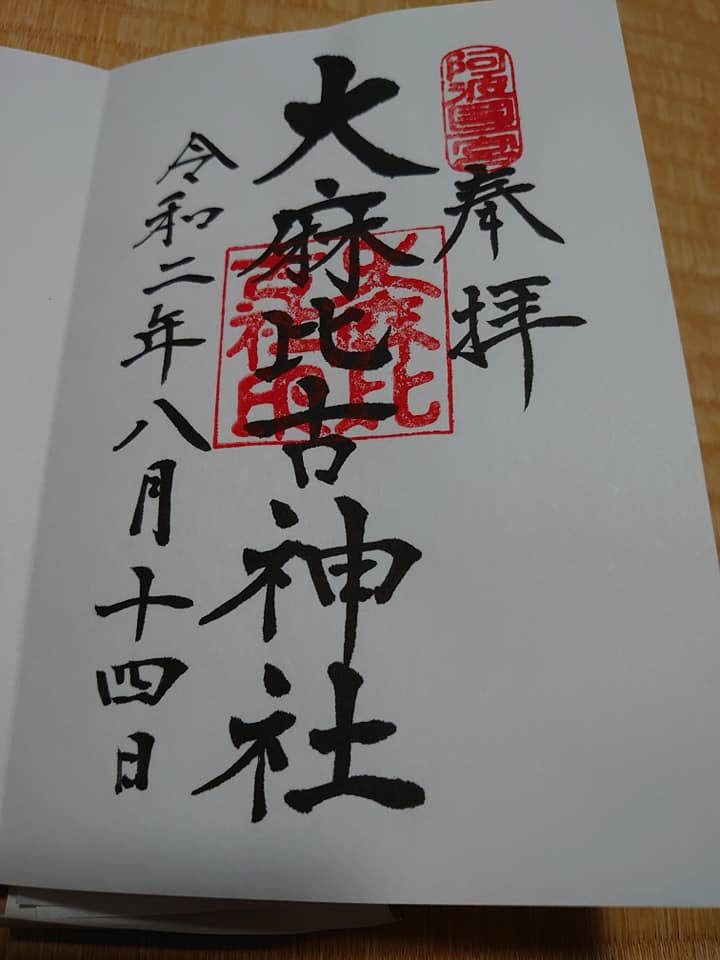 阿波国一宮
奉拝
大麻比古神社
大麻比古社印
令和二年八月十四日